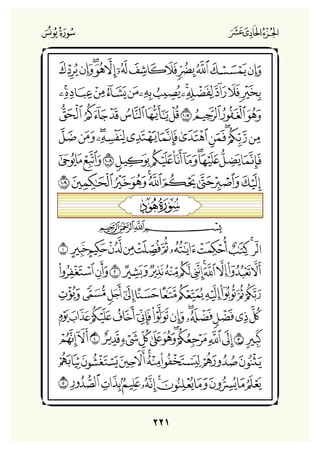 الجُزْءُ الحَادِيَ عَشَرَ سُورَةُ يُونُسَ
وَإِن يَمْسَسْكَ ٱللَّهُ بِضُرٍّ فَلَا كَاشِفَ لَهُۥٓ إِلَّا هُوَۖ وَإِن يُرِدْكَ
بِخَيْرٍ فَلَا رَآدَّ لِفَضْلِهِۦۚ يُصِيبُ بِهِۦ مَن يَشَآءُ مِنْ عِبَادِهِۦۚ
وَهُوَ ٱلْغَفُورُ ٱلرَّحِيمُ ١٠٧ قُلْ يَٰٓأَيُّهَا ٱلنَّاسُ قَدْ جَآءَكُمُ ٱلْحَقُّ
مِن رَّبِّكُمْۖ فَمَنِ ٱهْتَدَىٰ فَإِنَّمَا يَهْتَدِي لِنَفْسِهِۦۖ وَمَن ضَلَّ
فَإِنَّمَا يَضِلُّ عَلَيْهَاۖ وَمَآ أَنَا۠ عَلَيْكُم بِوَكِيلٍ ١٠٨ وَٱتَّبِعْ مَا يُوحَىٰٓ
إِلَيْكَ وَٱصْبِرْ حَتَّىٰ يَحْكُمَ ٱللَّهُۚ وَهُوَ خَيْرُ ٱلْحَٰكِمِينَ ١٠٩
سُورَةُ هُودٍ
بِسْمِ ٱللَّهِ ٱلرَّحْمَٰنِ ٱلرَّحِيمِ
الٓرۚ كِتَٰبٌ أُحْكِمَتْ ءَايَٰتُهُۥ ثُمَّ فُصِّلَتْ مِن لَّدُنْ حَكِيمٍ خَبِيرٍ ١
أَلَّا تَعْبُدُوٓا۟ إِلَّا ٱللَّهَۚ إِنَّنِي لَكُم مِّنْهُ نَذِيرٌ وَبَشِيرٌ ٢ وَأَنِ ٱسْتَغْفِرُوا۟
رَبَّكُمْ ثُمَّ تُوبُوٓا۟ إِلَيْهِ يُمَتِّعْكُم مَّتَٰعًا حَسَنًا إِلَىٰٓ أَجَلٍ مُّسَمًّى وَيُؤْتِ
كُلَّ ذِي فَضْلٍ فَضْلَهُۥۖ وَإِن تَوَلَّوْا۟ فَإِنِّيٓ أَخَافُ عَلَيْكُمْ عَذَابَ يَوْمٍ
كَبِيرٍ ٣ إِلَى ٱللَّهِ مَرْجِعُكُمْۖ وَهُوَ عَلَىٰ كُلِّ شَيْءٍ قَدِيرٌ ٤ أَلَآ إِنَّهُمْ
يَثْنُونَ صُدُورَهُمْ لِيَسْتَخْفُوا۟ مِنْهُۚ أَلَا حِينَ يَسْتَغْشُونَ ثِيَابَهُمْ
يَعْلَمُ مَا يُسِرُّونَ وَمَا يُعْلِنُونَۚ إِنَّهُۥ عَلِيمٌۢ بِذَاتِ ٱلصُّدُورِ ٥
٢٢١